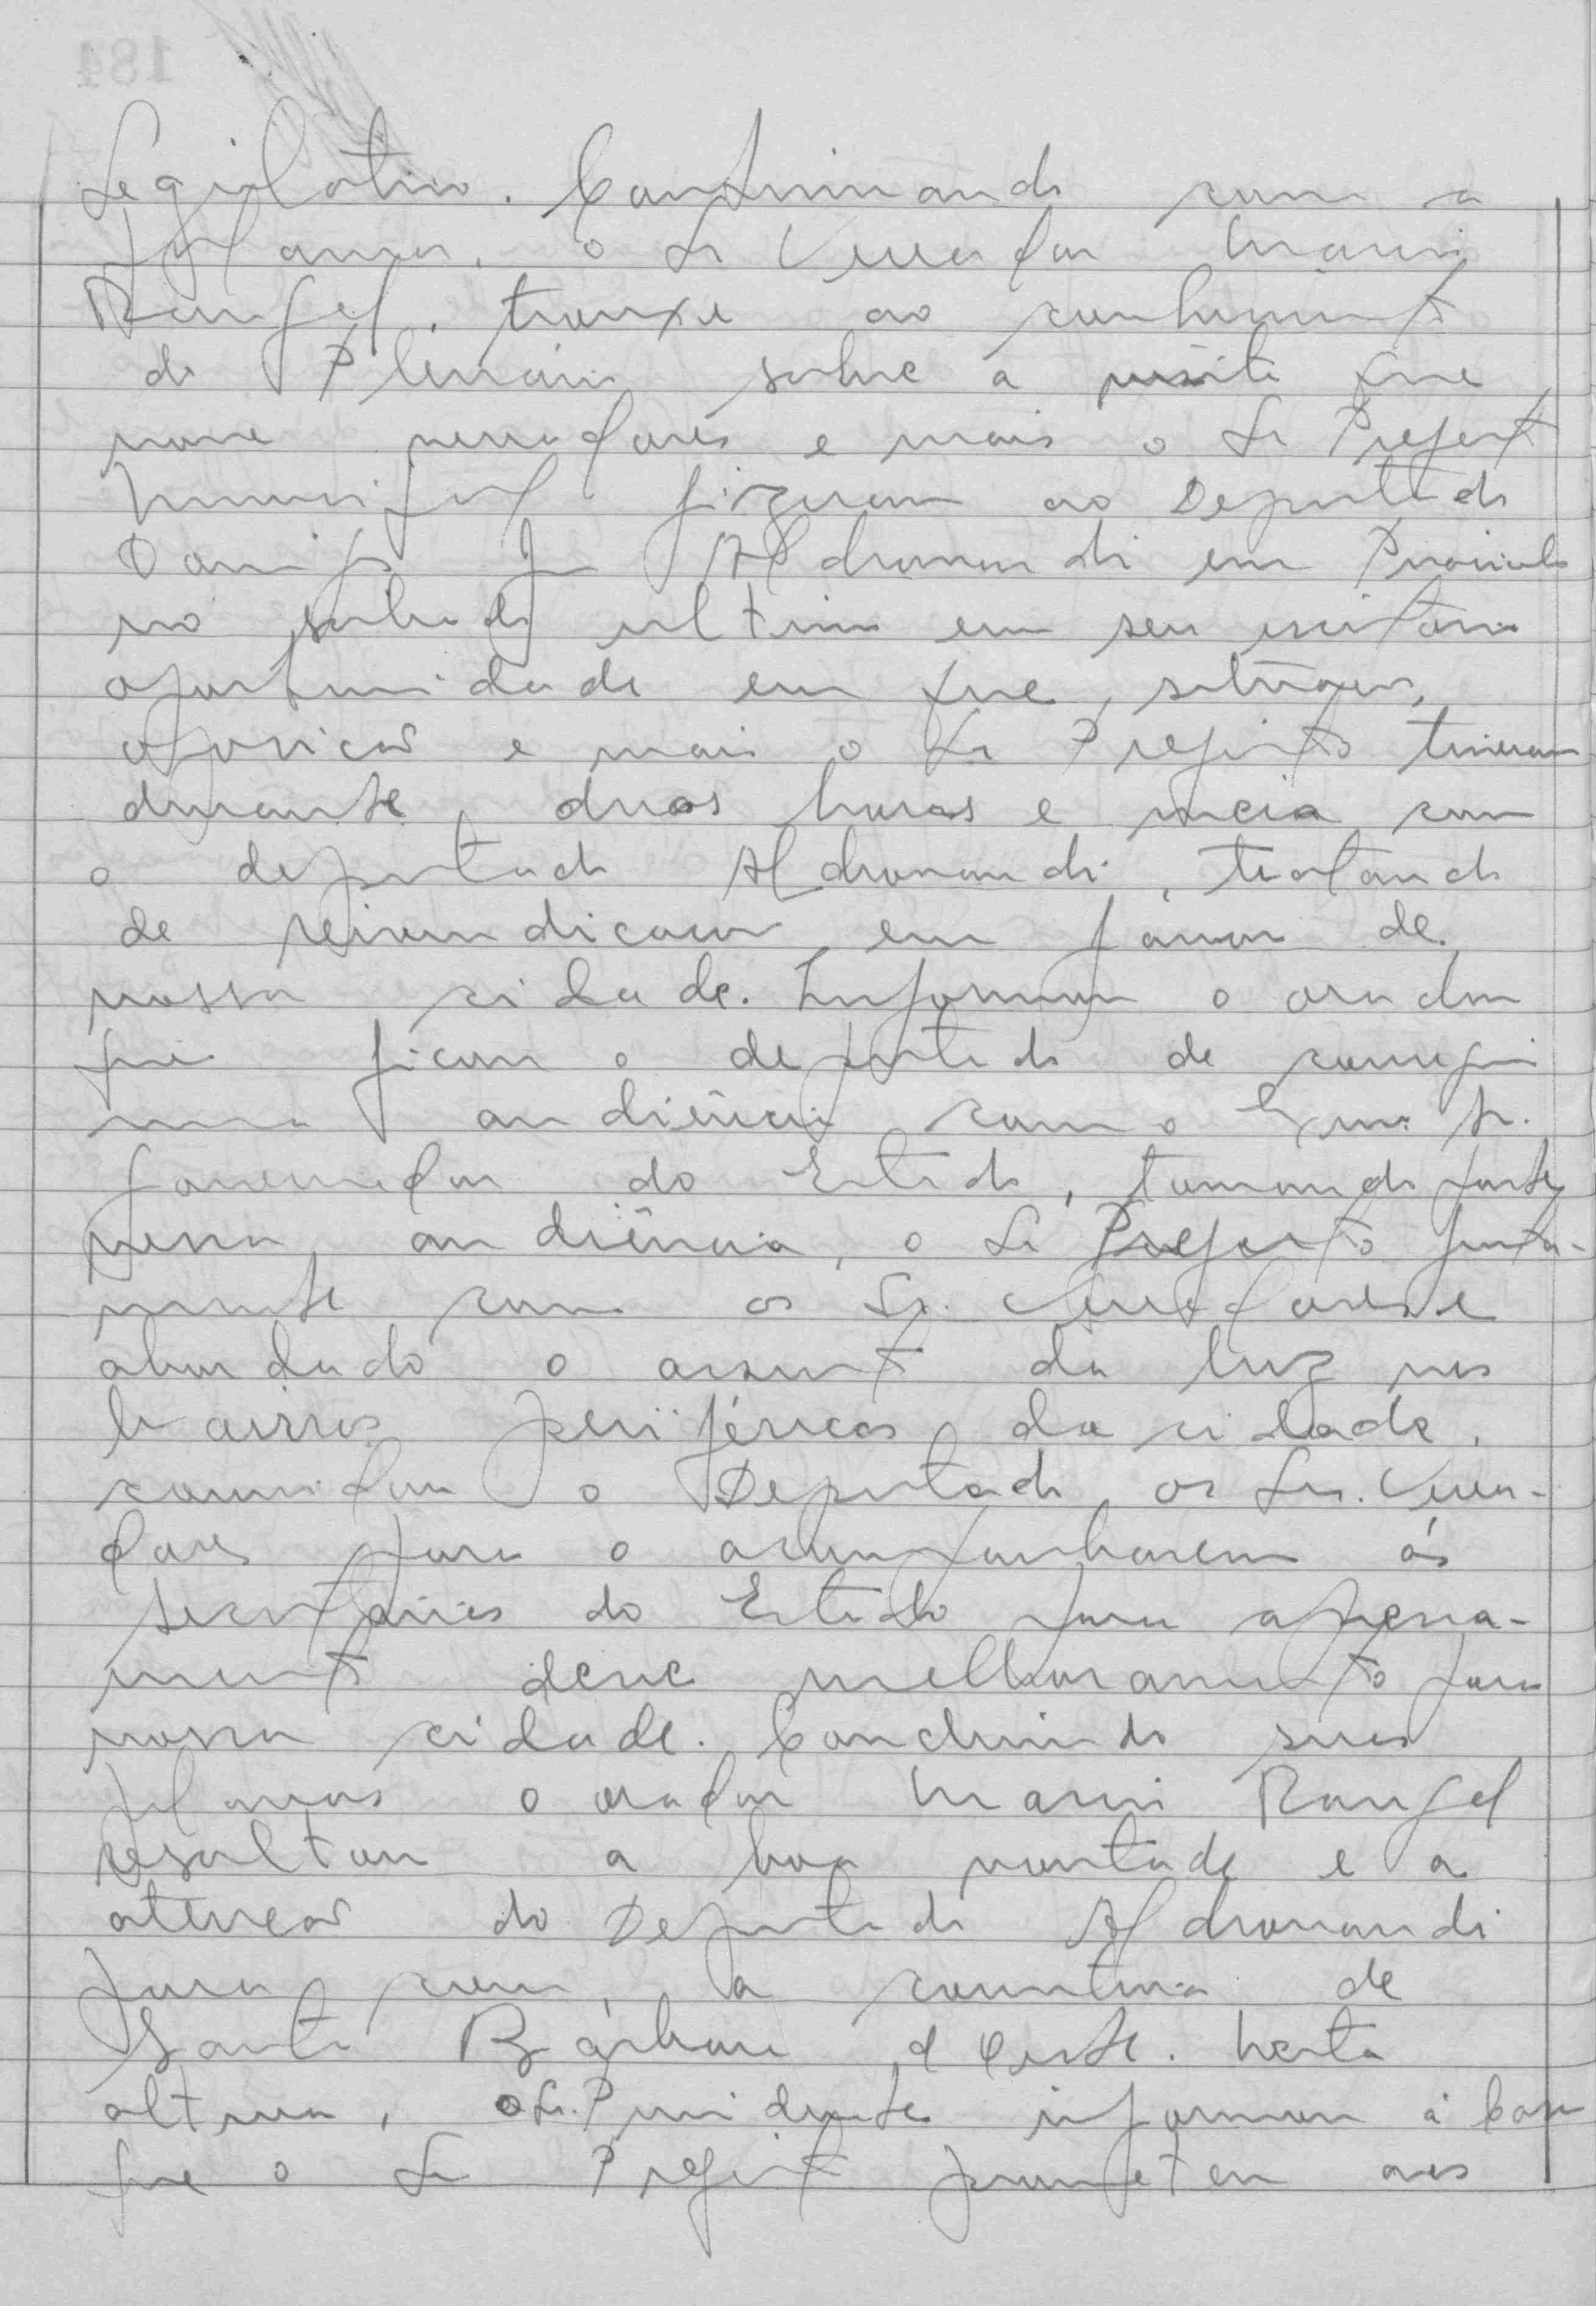 Legislativo. Continuando com a
palavra, o Sr Vereador Mario
Rangel, trouxe ao conhecimento
do Plenário sobre a visita que
nove vereadores e mais o Sr Prefeito
Municipal fizeram ao Deputado
Aldrovandi em Piracicaba
no sabado ultimo em seu escritório
oportunidade em que, situação,
oposição e mais o Sr Prefeito tiveram
durante, duas horas e meia com
o deputado Aldrovandi, tratando
de reivindicacoes em favor de
nossa cidade. Informou o orador
que ficou o deputado de conseguir
uma audiência com o Exmo Sr.
Governador do Estado, tomando parte
nessa audiência, o Sr Prefeito junta-
mente com os Srs. Vereadores e
abordado o assunto da luz nos
bairros periféricos da cidade.
convidou o Deputado os Srs. Verea-
dores para o acompanharem ás
secretarias do Estado para apressa-
mento desse melhoramento para
nossa cidade. Concluindo suas
palavras o orador Mario Rangel
resaltou a boa vontade e a
atenção do Deputado Aldrovandi
para com, a comitiva de
Santa Bárbara d'Oeste. Nesta
altura, o Sr. Presidente informou à Casa
que o Sr Prefeito prometeu aos
184